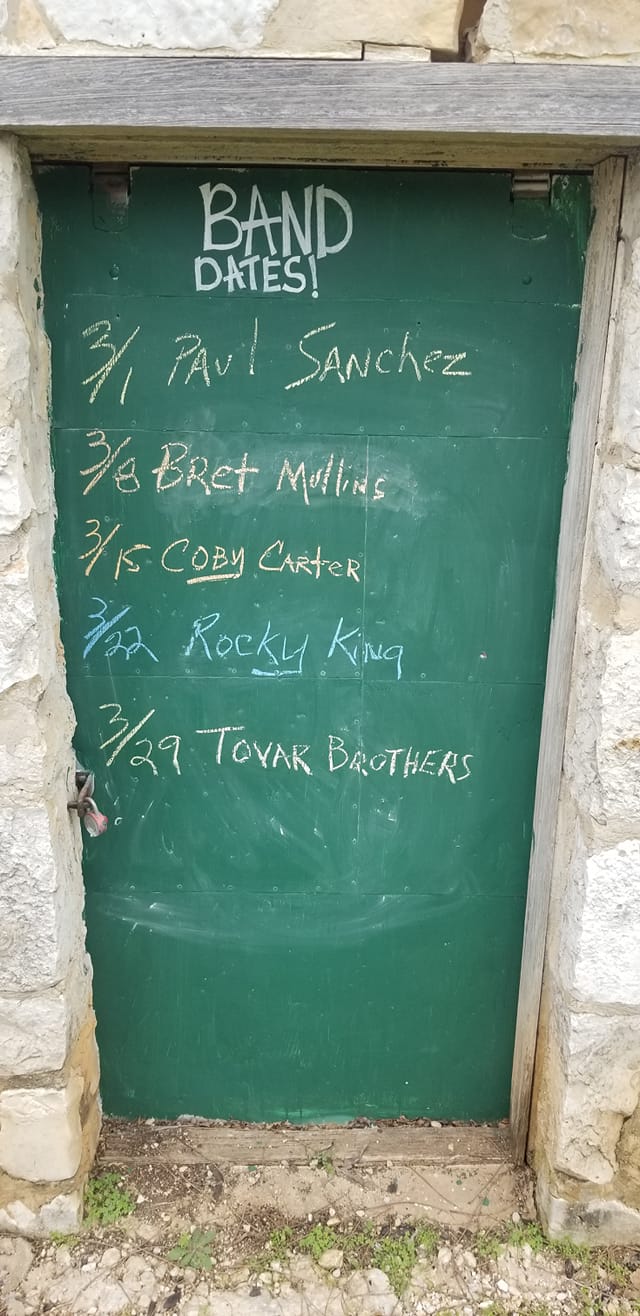 BAND
DATES!
3/1 Paul Sanchez
3/8 Bret Mullins
3/15 Coby Carter
3/22 Rocky King
3/29 Tovar Brothers